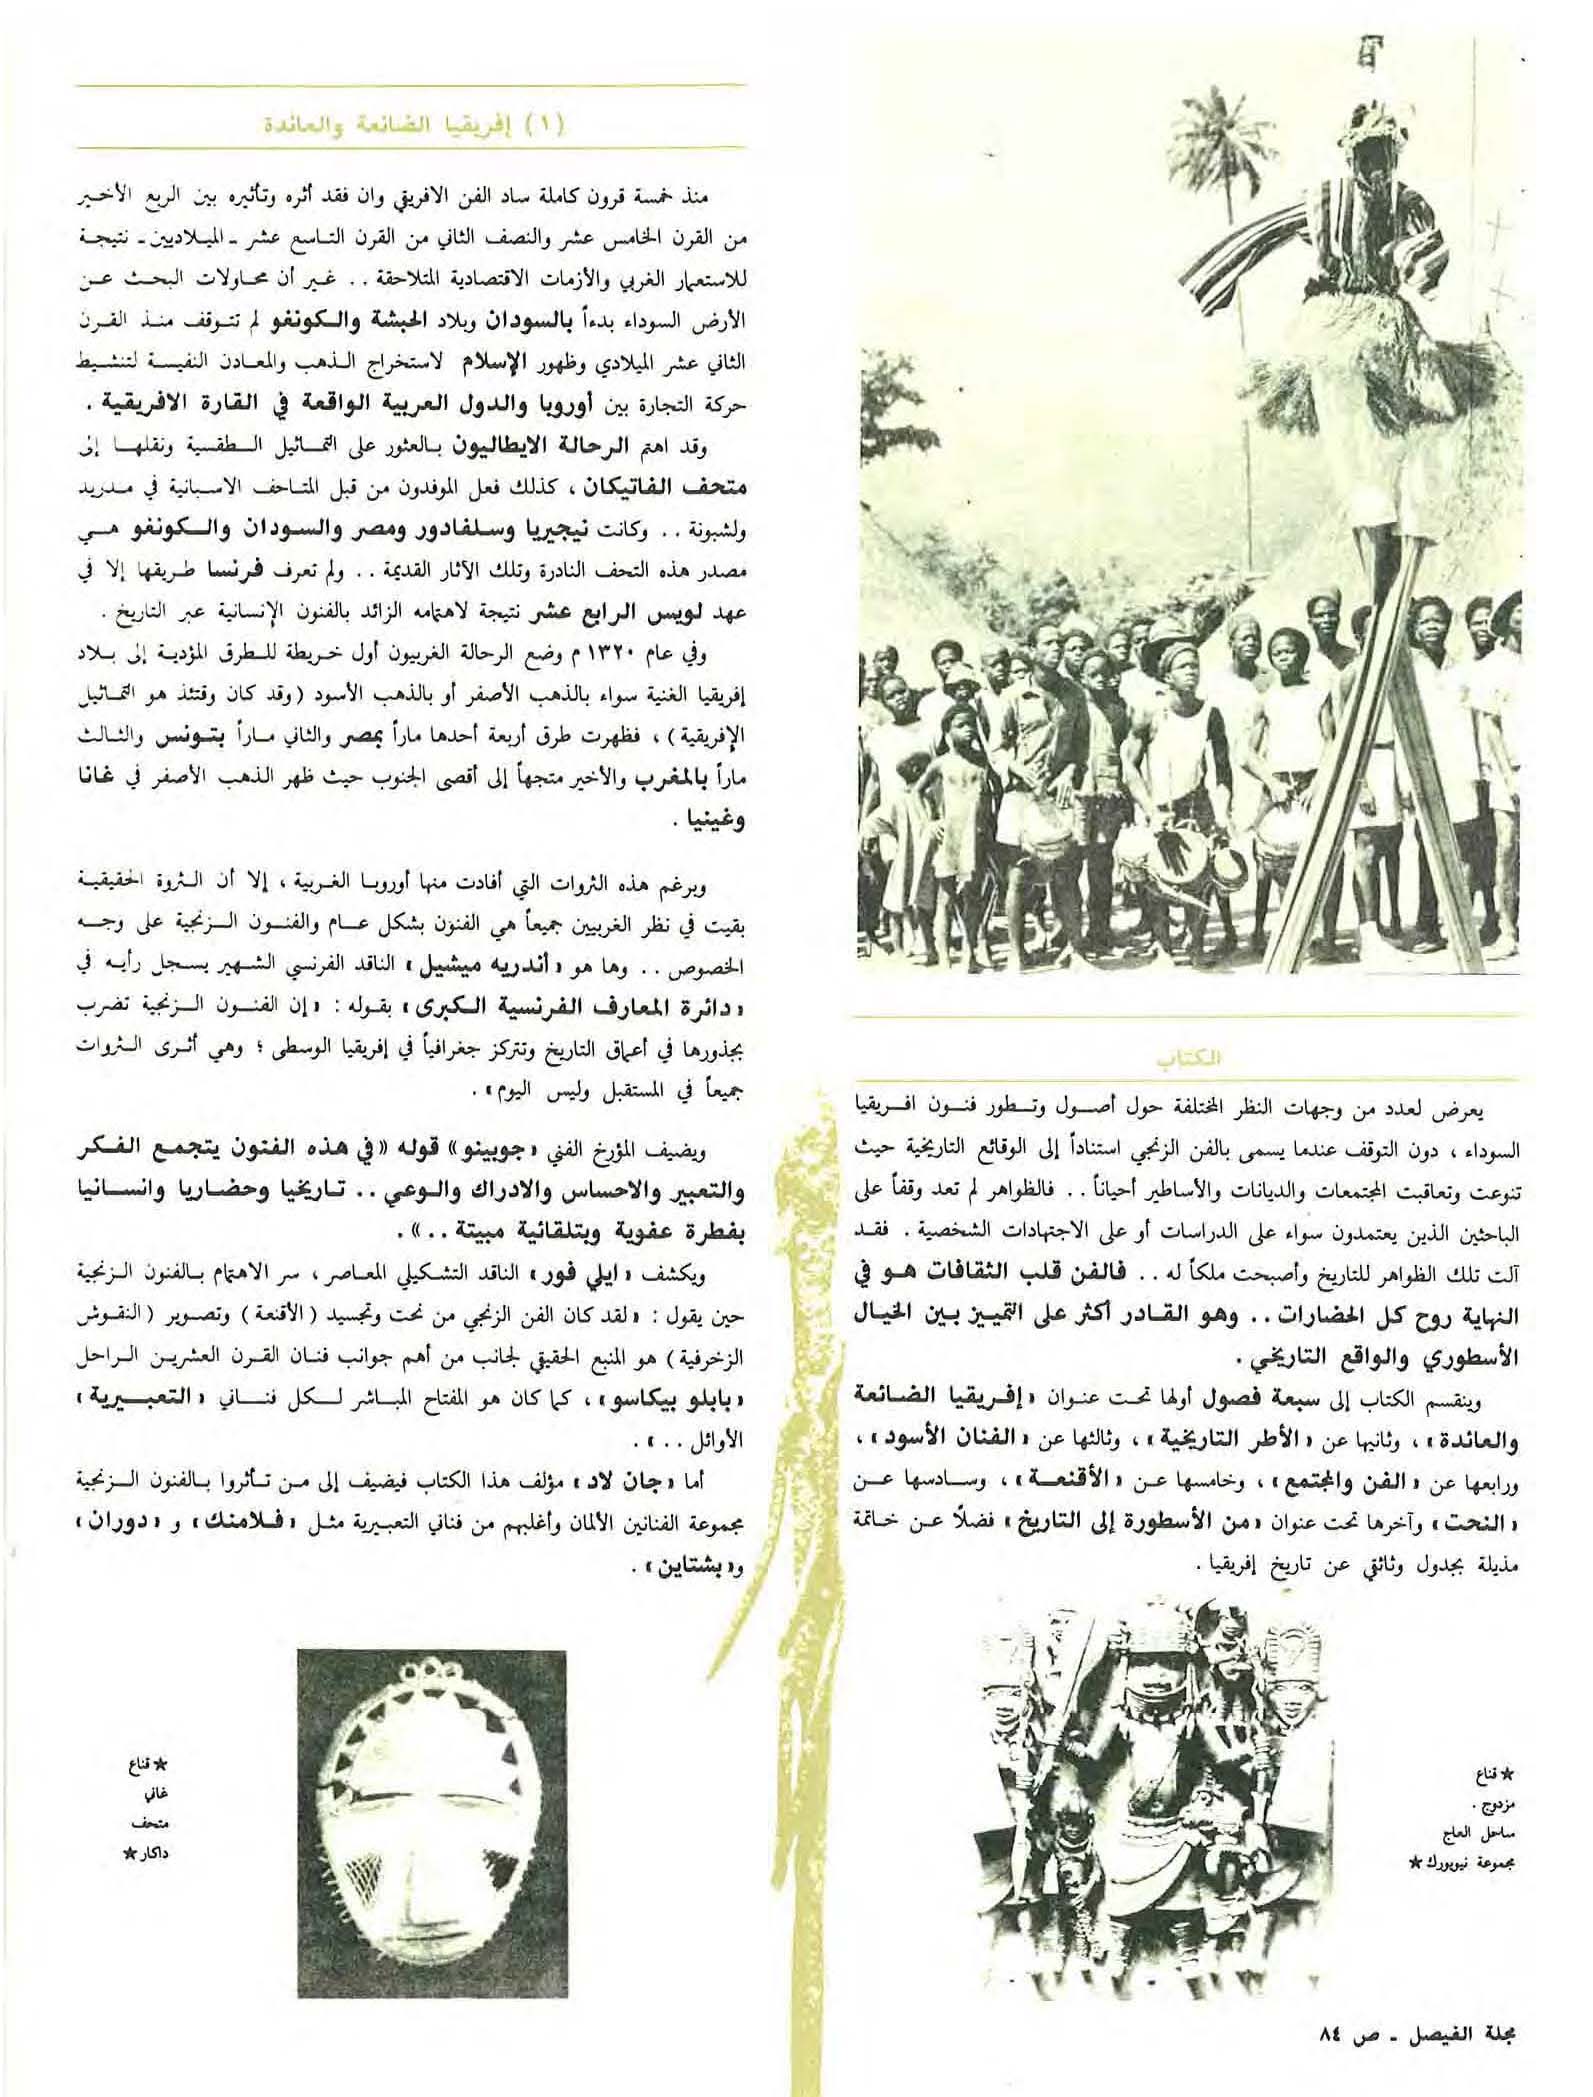 الكتاب
يعرض لعدد من وجهات النظر المختلفة حول أصول وتطور فنون افريقيا
السوداء ، دون التوقف عندما يسمى بالفن الزنجي استناداً إلى الوقائع التاريخية حيث
تنوعت وتعاقبت المجتمعات والديانات والأساطير أحياناً . . فالظواهر لم تعد وقفاً على
الباحثين الذين يعتمدون سواء على الدراسات أو على الاجتهادات الشخصية . فقد
آلت تلك الظواهر للتاريخ وأصبحت ملكاً له . . فالفن قلب الثقافات هو في
النهاية روح كل الحضارات . . وهو القادر أكثر على التمييز بين الخيال
الأسطوري والواقع التاريخي .
وينقسم الكتاب إلى سبعة فصول أولها تحت عنوان « إفريقيا الضائعة
والعائدة » ، وثانيها عن « الأطر التاريخية » ، وثالثها عن « الفنان الأسود » ،
ورابعها عن « الفن والمجتمع » ، وخامسها عن « الأقنعة » ، وسادسها عن
« النحت » وآخرها تحت عنوان « من الأسطورة إلى التاريخ » فضلاً عن خاتمة
مذيلة بجدول وثائقي عن تاريخ إفريقيا .
★ قناع
مزدوج .
ساحل العاج
مجموعة نيويورك ★
مجلة الفيصل - ص ٨٤
( ١ ) إفريقيا الضائعة والعائدة
منذ خمسة قرون كاملة ساد الفن الافريقي وان فقد أثره وتأثيره بين الربع الأخير
من القرن الخامس عشر والنصف الثاني من القرن التاسع عشر - الميلاديين - نتيجة
للاستعمار الغربي والأزمات الاقتصادية المتلاحقة . . غير أن محاولات البحث عن
الأرض السوداء بدءاً بالسودان وبلاد الحبشة والكونغو لم تتوقف منذ القرن
الثاني عشر الميلادي وظهور الإسلام لاستخراج الذهب والمعادن النفيسة لتنشيط
حركة التجارة بين أوروبا والدول العربية الواقعة في القارة الافريقية .
وقد اهتم الرحالة الايطاليون بالعثور على التماثيل الطقسية ونقلها إلى
متحف الفاتيكان ، كذلك فعل الموفدون من قبل المتاحف الاسبانية في مدريد
ولشبونة . . وكانت نيجيريا وسلفادور ومصر والسودان والكونغو هي
مصدر هذه التحف النادرة وتلك الآثار القديمة . . ولم تعرف فرنسا طريقها إلا في
عهد لويس الرابع عشر نتيجة لاهتمامه الزائد بالفنون الإنسانية عبر التاريخ .
وفي عام ١٣٢٠ م وضع الرحالة الغربيون أول خريطة للطرق المؤدية إلى بلاد
إفريقيا الغنية سواء بالذهب الأصفر أو بالذهب الأسود ( وقد كان وقتئذ هو التماثيل
الإفريقية ) ، فظهرت طرق أربعة أحدها ماراً بمصر والثاني ماراً بتونس والثالث
ماراً بالمغرب والأخير متجهاً إلى أقصى الجنوب حيث ظهر الذهب الأصفر في غانا
وغينيا .
وبرغم هذه الثروات التي أفادت منها أوروبا الغربية ، إلا أن الثروة الحقيقية
بقيت في نظر الغربيين جميعاً هي الفنون بشكل عام والفنون الزنجية على وجه
الخصوص . . وها هو « أندريه ميشيل » الناقد الفرنسي الشهير يسجل رأيه في
« دائرة المعارف الفرنسية الكبرى » بقوله : « إن الفنون الزنجية تضرب
بجذورها في أعماق التاريخ وتتركز جغرافياً في إفريقيا الوسطى ؛ وهي أثرى الثروات
جميعاً في المستقبل وليس اليوم » .
ويضيف المؤرخ الفني « جوبينو » قوله « في هذه الفنون يتجمع الفكر
والتعبير والاحساس والادراك والوعي . . تاريخيا وحضاريا وانسانيا
بفطرة عفوية وبتلقائية مبيتة . . » .
ويكشف « ايلي فور » الناقد التشكيلي المعاصر ، سر الاهتمام بالفنون الزنجية
حين يقول : « لقد كان الفن الزنجي من نحت وتجسيد ( الأقنعة ) وتصوير ( النقوش
الزخرفية ) هو المنبع الحقيقي لجانب من أهم جوانب فنان القرن العشرين الراحل
« بابلو بيكاسو » ، كما كان هو المفتاح المباشر لكل فناني « التعبيرية »
الأوائل . . » .
أما « جان لاد » مؤلف هذا الكتاب فيضيف إلى من تأثروا بالفنون الزنجية
مجموعة الفنانين الألمان وأغلبهم من فناني التعبيرية مثل « فلامنك » و « دوران »
و« بشتاين » .
★ قناع
غاني
متحف
داكار ★